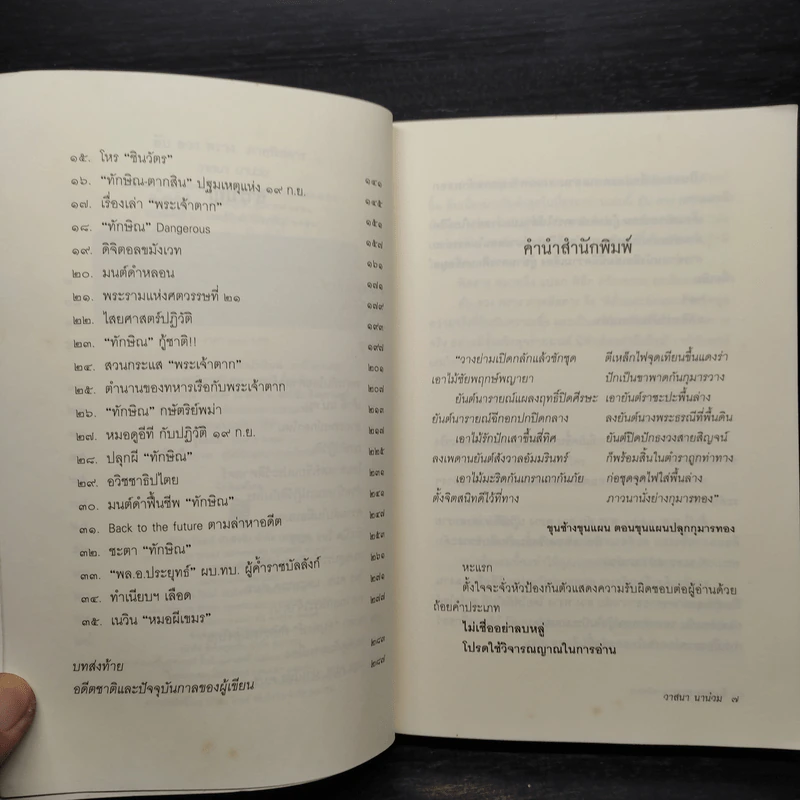 ๑๕. โหร “ชินวัตร” ๑๔๑
๑๖. “ทักษิณ-ตากสิน” ปฐมเหตุแห่ง ๑๙ ก.ย. ๑๔๕
๑๗. เรื่องเล่า “พระเจ้าตาก” ๑๕๑
๑๘. “ทักษิณ” Dangerous ๑๕๗
๑๙. ดิจิตอลขมังเวท ๑๖๑
๒๐. มนต์ดำหลอน ๑๗๑
๒๑. พระรามแห่งศตวรรษที่ ๒๑ ๑๗๙
๒๒. ไสยศาสตร์ปฏิวัติ
๒๓. “ทักษิณ” กู้ชาติ!! ๑๙๘
๒๔. สวนกระแส “พระเจ้าตาก” ๒๐๑
๒๕. ตำนานของทหารเรือกับพระเจ้าตาก ๒๐๗
๒๖. “ทักษิณ” กษัตริย์พม่า ๒๑๓
๒๗. หมอดูอีที กับปฏิวัติ ๑๙ ก.ย. ๒๑๘
๒๘. ปลุกผี “ทักษิณ”
๒๙. อวิชชาธิปไตย ๒๓๑
๓๐. มนต์ดำฟื้นชีพ “ทักษิณ” ๒๔๑
๓๑. Back to the future ตามล่าหาอดีต ๒๔๗
๓๒. ชะตา “ทักษิณ” ๒๕๓
๓๓. “พล.อ.ประยุทธ์” ผบ.ทบ. ผู้ค้ำราชบัลลังก์ ๒๖๑
๓๔. ทำเนียบฯ เลือด ๒๗๑
๓๕. เนวิน “หมอผีเขมร” ๒๗๗
บทส่งท้าย ๒๘๓
อดีตชาติและปัจจุบันกาลของผู้เขียน ๒๘๗
คำนำสำนักพิมพ์
“วางย่ามเปิดกลักแล้วชักชุด ตีเหล็กไฟจุดเทียนขึ้นแดงร่า
เอาไม้ชัยพฤกษ์พญายา ปักเป็นขาพาดกันกุมารวาง
ยันต์นารายณ์แผลงฤทธิ์ปิดศีรษะ เอายันต์ราชะปะพื้นล่าง
ยันต์นารายณ์ฉีกอกปกปิดกลาง ลงยันต์นางพระธรณีที่พื้นดิน
เอาไม้รักปักเสาขึ้นสี่ทิศ ยันต์ปิดปักธงวงสายสิญจน์
ลงเพดานยันต์สังวาลอัมมรินทร์ ก็พร้อมสิ้นในตำราถูกท่าทาง
เอาไม้มะริดกันเกราเถากันภัย ก่อชุดจุดไฟใส่พื้นล่าง
ตั้งจิตสนิทดีไว้ที่ทาง ภาวนานั่งย่างกุมารทอง”
ขุนช้างขุนแผน ตอนขุนแผนปลุกกุมารทอง
หะแรก
ตั้งใจจะจั่วหัวป้องกันตัวแสดงความรับผิดชอบต่อผู้อ่านด้วย
ถ้อยคำประเภท
ไม่เชื่ออย่าลบหลู่
โปรดใช้วิจารณญาณในการอ่าน
วาสนา นาน่วม ๗